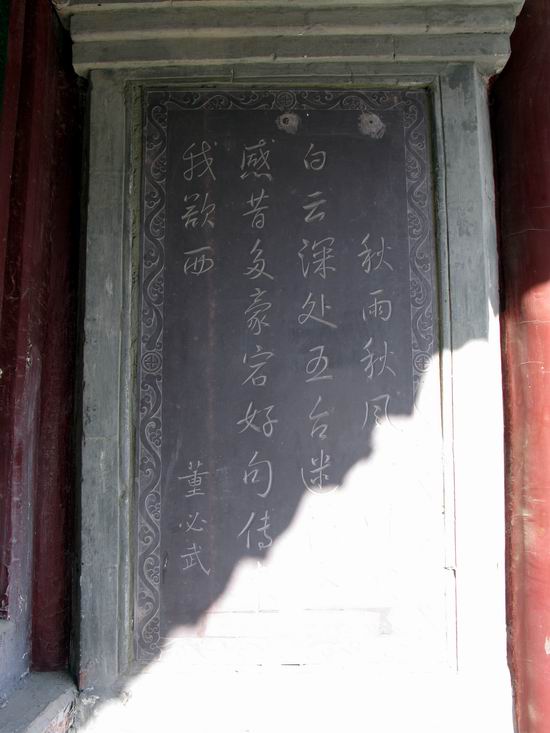 秋雨秋风
白云深处五台迷
感昔多豪宕好句传
我欲西
董必武